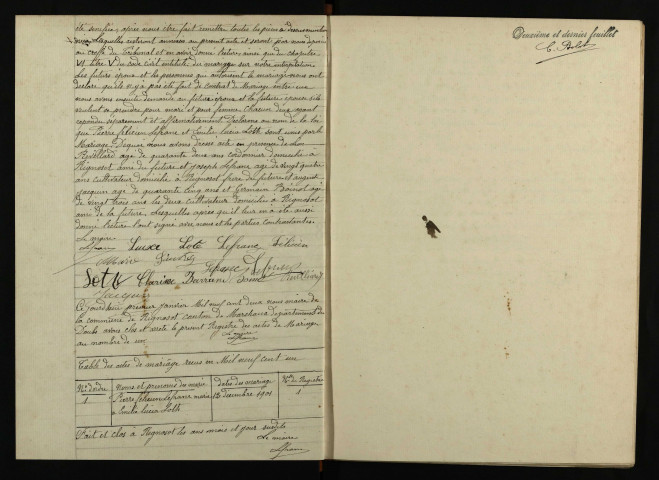 été vérifiées, après nous être fait remettre toutes les pièces
lesquelles resteront annexées au présent acte et seront par nous
au greffe du Tribunal et en avoir donné lecture ainsi que du chapitre
VI titre V du code civil intitulé du mariage sur notre interpellation
les futurs époux et les personnes qui autorisent le mariage nous ont
déclaré qu'il n'y a pas été fait de contrat de Mariage entre eux
nous avons ensuite demandé au futur époux et à la future épouse s'ils
veulent se prendre pour mari et pour femme chacun d'eux ayant
répondu séparément et affirmativement Déclarons au nom de la loi
que Pierre félicien Lefranc et Emilie Lucia Loth sont unis par le
Mariage Dequoi nous avons dressé acte en présence de
âgé de quarante deux ans cordonnier domicilié à
Rignosot ami du futur et Joseph Lefranc âgé de vingt quatre
ans cultivateur domicilié à Rignosot frère du futur et august
Jacquin âgé de quarante cinq ans et Germain âgé
de vingt trois ans les deux cultivateurs domiciliés à Rignosot
ami de la future. Lesquels après qu'il leur en a été aussi
donné lecture l'ont signé avec nous et les parties contractantes.
Le maire
Lefranc félicien
Lefranc
Clarisse
Jacquin
Ce jourd'hui premier janvier Mil neuf cent deux nous maire de
la commune de Rignosot canton de Marchaux département du
Doubs avons clos et arrêté le présent Registre des actes de Mariage
au nombre de un
Le maire
Table des actes de mariage reçus en Mil neuf cent un
Nos d'ordre Noms et prénoms des mariés dates des mariages Nos du Registre
1 Pierre félicien Lefranc marié 12 décembre 1901 1
à Emilie Lucia Loth
Fait et clos à Rignosot les ans mois et jour susdits
Le maire
Deuxième et dernier feuillet